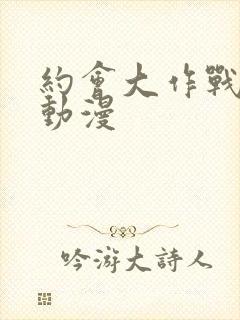 約會大作戰
動漫
吟游大詩人